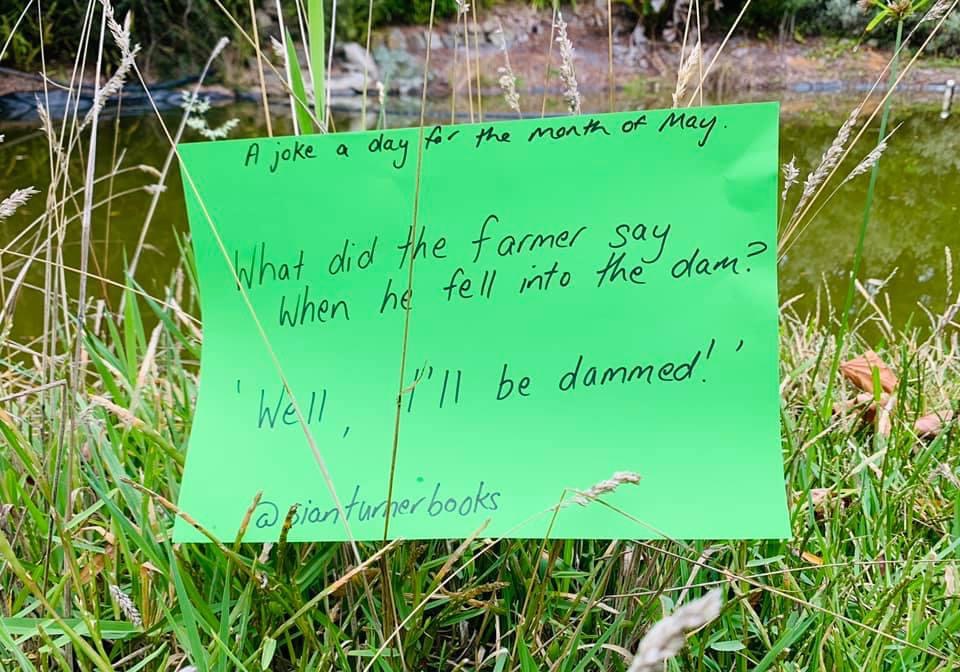 A joke a day for the month of May.
What did the farmer say
When he fell into the dam?
'Well, I'll be dammed!'
@sianturnerbooks